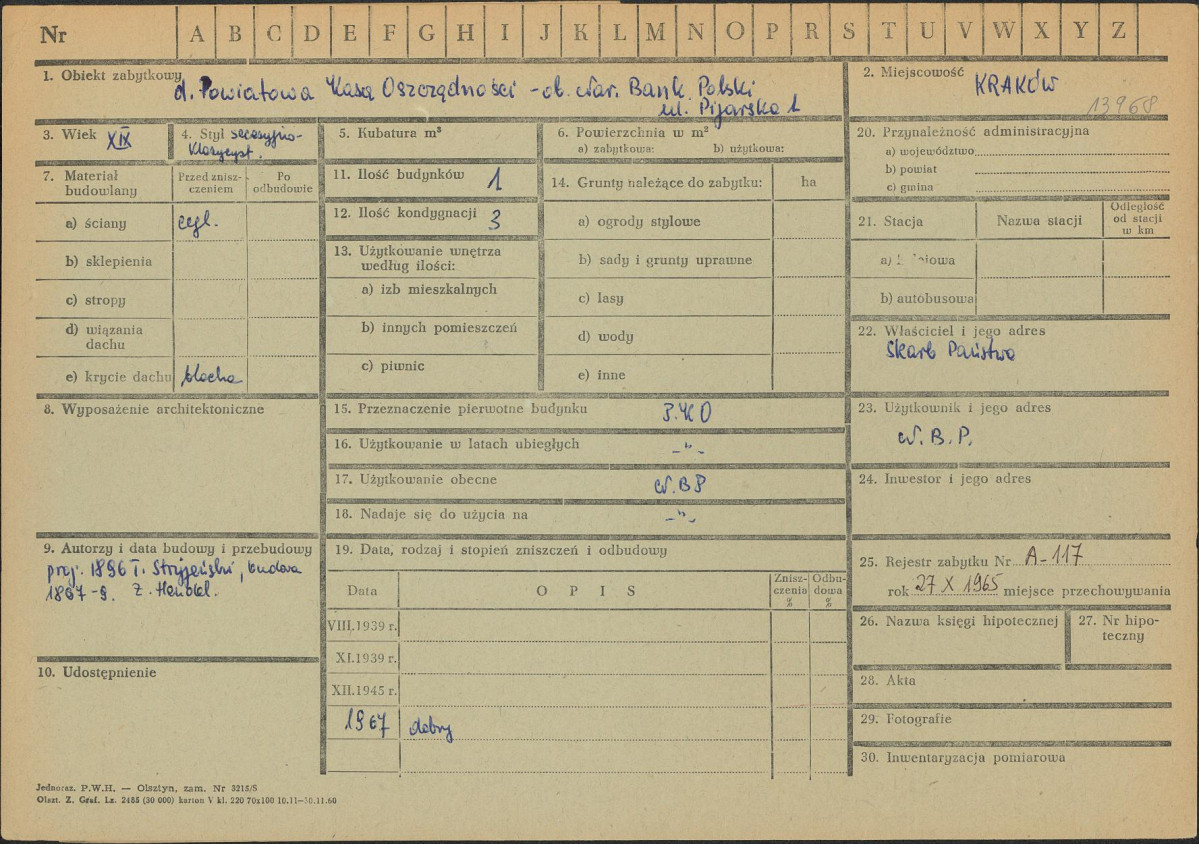 Nr A B C D E F G H I J K L M N O P R S T U V W X Y Z
1. Obiekt zabytkowy d. Powiatowa Kasa Oszczędności - ob. Nar. Bank Polski
ul. Pijarska 1
2. Miejscowość KRAKÓW
13968
3. Wiek XIX
4. Styl secesyjno-
klasycyst.
5. Kubatura m³
6. Powierzchnia w m²
a) zabytkowa: b) użytkowa:
7. Materiał
budowlany
Przed znisz-
czeniem
Po
odbudowie
a) ściany cegl.
b) sklepienia
c) stropy
d) wiązania
dachu
e) krycie dachu blacha
8. Wyposażenie architektoniczne
9. Autorzy i data budowy i przebudowy
proj. 1896 T. Stryjeński, budowa
1897-9. Z. Hendel.
10. Udostępnienie
11. Ilość budynków 1
12. Ilość kondygnacji 3
13. Użytkowanie wnętrza
według ilości:
a) izb mieszkalnych
b) innych pomieszczeń
c) piwnic
14. Grunty należące do zabytku: ha
a) ogrody stylowe
b) sady i grunty uprawne
c) lasy
d) wody
e) inne
15. Przeznaczenie pierwotne budynku P.K.O
16. Użytkowanie w latach ubiegłych -"-
17. Użytkowanie obecne N.B.P
18. Nadaje się do użycia na -"-
19. Data, rodzaj i stopień zniszczeń i odbudowy
Data
O P I S
Znisz-
czenia
%
Odbu-
dowa
%
VIII.1939 r.
XI.1939 r.
XII.1945 r.
1967 dobry
20. Przynależność administracyjna
a) województwo
b) powiat
c) gmina
21. Stacja
Nazwa stacji
Odległość
od stacji
w km
a)
b) autobusowa
22. Właściciel i jego adres
Skarb Państwa
23. Użytkownik i jego adres
N.B.P.
24. Inwestor i jego adres
25. Rejestr zabytku Nr A-117
rok 27 X 1965 miejsce przechowywania
26. Nazwa księgi hipotecznej
27. Nr hipo-
teczny
28. Akta
29. Fotografie
30. Inwentaryzacja pomiarowa
Jednoraz. P.W.H. — Olsztyn, zam. Nr 3215/S
Olszt. Z. Graf. Lz. 2485 (30 000) karton V kl. 220 70x100 10.11—30.11.60